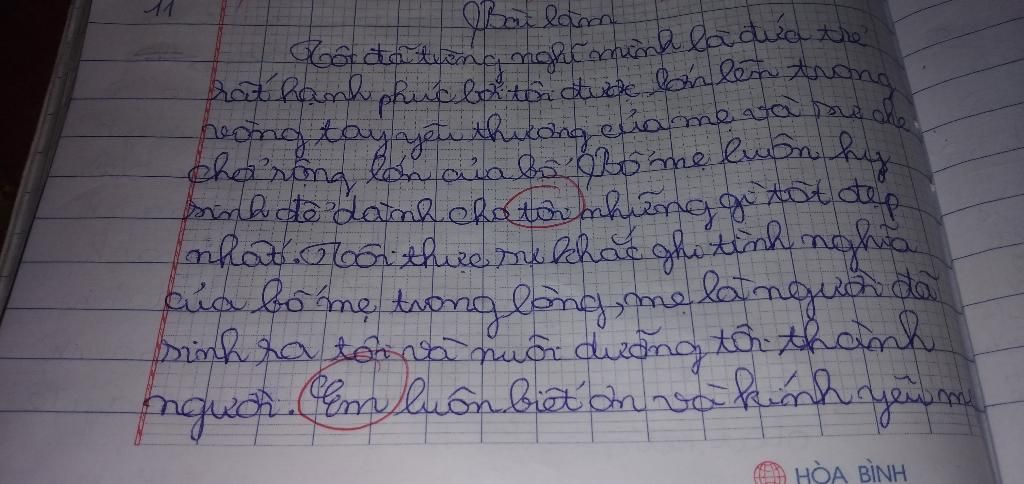 11
Bài làm
Tôi đã từng nghĩ mình là đứa trẻ
rất hạnh phúc bởi tôi được lớn lên trong
vòng tay yêu thương của mẹ và sự che
chở rộng lớn của bố. Bố mẹ luôn hy
sinh để dành cho tôi những gì tốt đẹp
nhất. Tôi thực sự khắc ghi tình nghĩa
của bố mẹ trong lòng, mẹ là người đã
sinh ra tôi và nuôi dưỡng tôi thành
người. Em luôn biết ơn và kính yêu mẹ
HÒA BÌNH